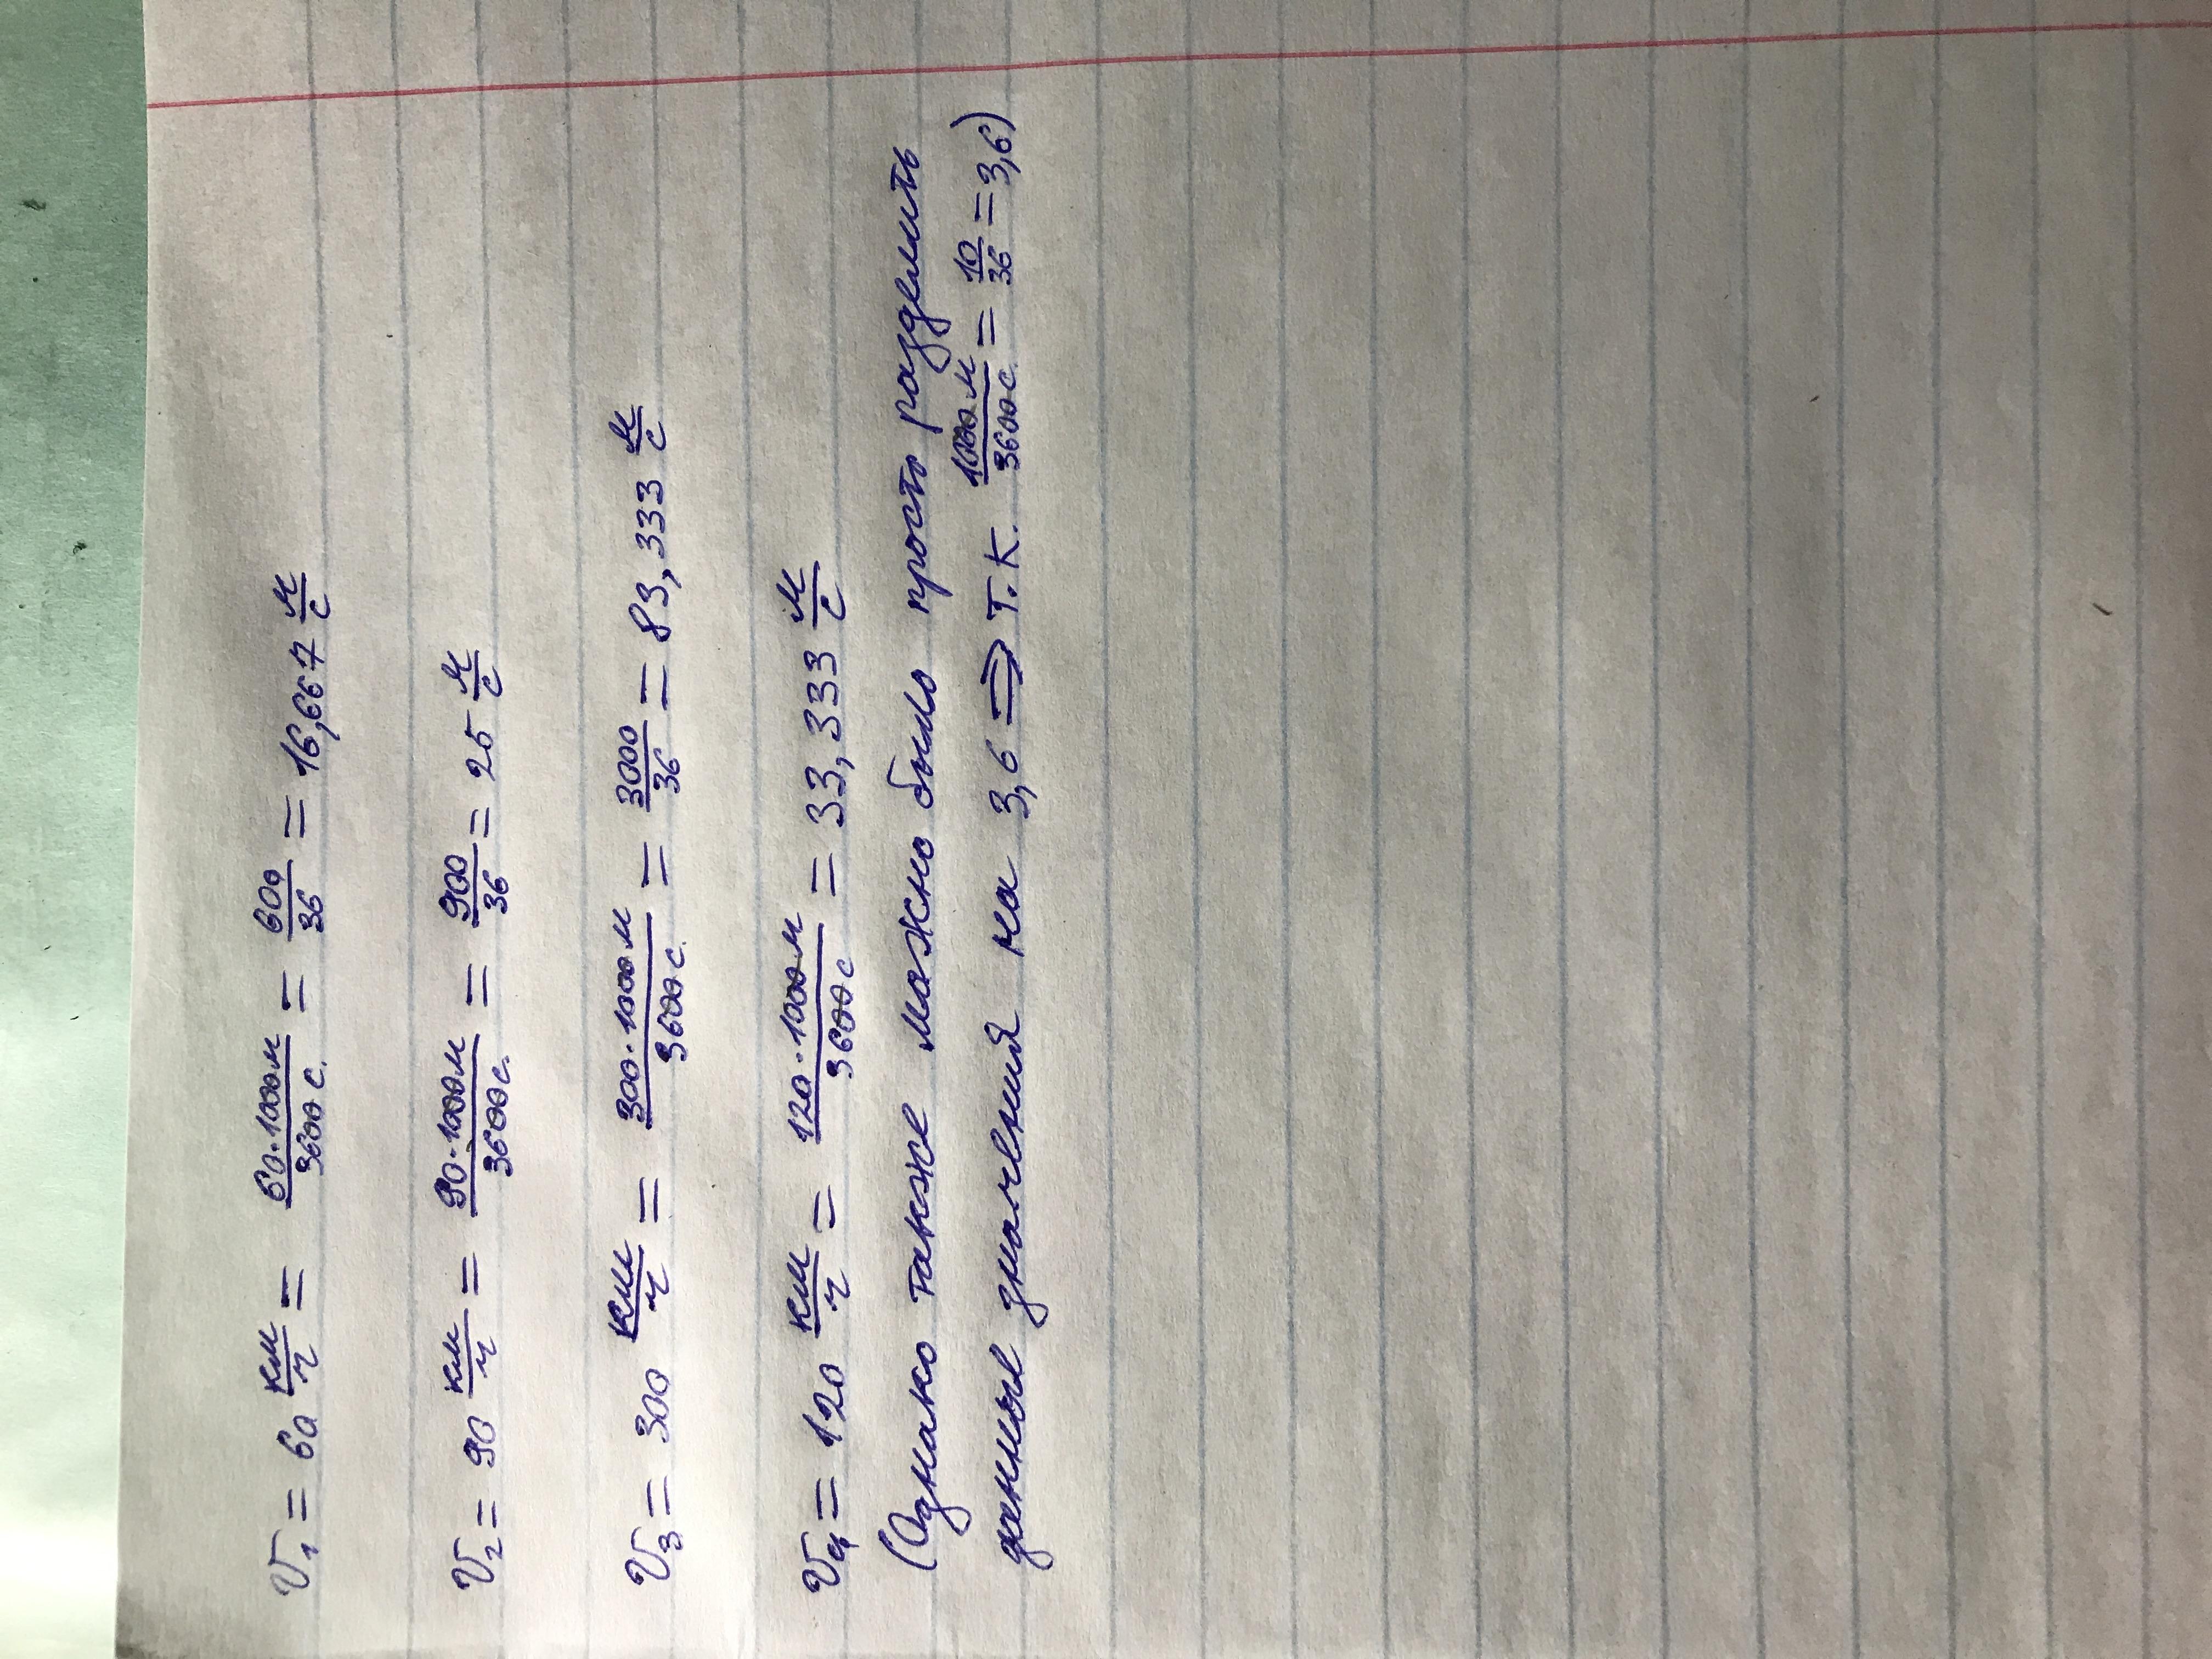 V₁ = 60 км/ч = 60·1000м/3600 с. = 600/36 = 16,667 м/с
V₂ = 90 км/ч = 90·1000м/3600с. = 900/36 = 25 м/с
V₃ = 300 км/ч = 300·1000м/3600 с. = 3000/36 = 83,333 м/с
V₄ = 120 км/ч = 120·1000м/3600 с = 33,333 м/с
(Однако также можно было просто разделить
данные значения на 3,6 ⇒ т.к. 1000 м/3600 с. = 10/36 = 3,6)